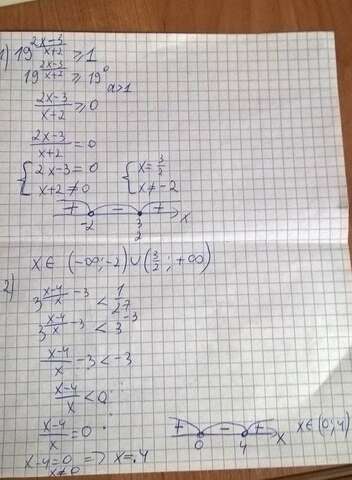 1) 19^((2x-3)/(x+2)) ≥ 1
19^((2x-3)/(x+2)) ≥ 19^0
a>1
(2x-3)/(x+2) ≥ 0
(2x-3)/(x+2) = 0
{ 2x-3=0 { x=3/2
{ x+2≠0 { x≠-2
+ - +
-2 3/2 x
x∈(-∞;-2)∪(3/2;+∞)
2)
3^((x-4)/x -3) < 1/27
3^((x-4)/x -3) < 3^-3
(x-4)/x -3 < -3
(x-4)/x < 0
(x-4)/x = 0
+ - +
0 4 x
x∈(0;4)
x-4=0 => x=4
x≠0